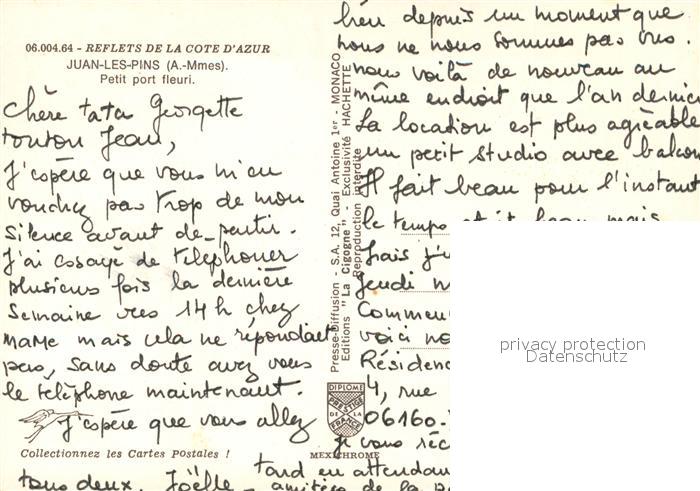 06.004.64 - REFLETS DE LA COTE D'AZUR
JUAN-LES-PINS (A.-Mmes).
Petit port fleuri.
Chère tata Georgette
tonton Jean,
J'espère que vous m'en
voudrez pas trop de mon
silence avant de partir.
J'ai essayé de telephoner
plusieurs fois la dernière
semaine vers 14h chez
mame mais cela ne répondait
pas, sans doute avez vous
le téléphone maintenant.
J'espère que vous allez
Collectionnez les Cartes Postales !
tous deux. Joëlle
Presse-Diffusion - S.A. 12, Quai Antoine 1er - MONACO
Editions "La Cigogne" - Exclusivité HACHETTE
Reproduction interdite
DIPLOME
PRESTIGE
DE LA
FRANCE
MEXICHROME
bien depuis un moment que
nous ne nous sommes pas vus.
nous voilà de nouveau au
même endroit que l'an dernier
La location est plus agréable
un petit studio avec balcon
Il fait beau pour l'instant
le temps était beau mais
frais j'u
Jeudi
Commen
voici no
Résidenc
4, rue
06160.
je vous réc
tard en attendan
amitiés de la
privacy protection
Datenschutz